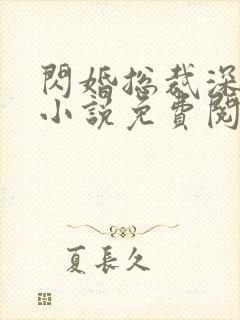 閃婚總裁深
小說免費閱
夏長久